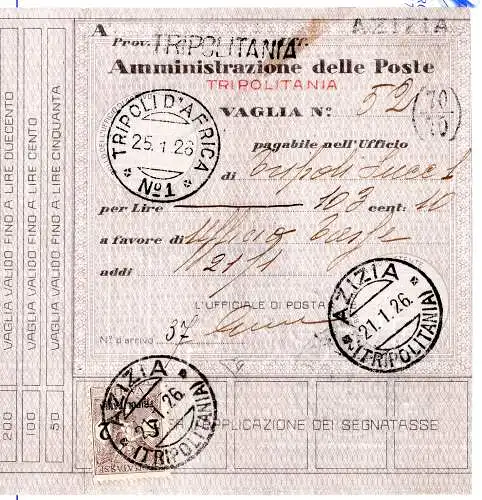 A
Prov. TRIPOLITANIA Uff. AZIZIA
Amministrazione delle Poste
TRIPOLITANIA
VAGLIA N.º 52 (70/10)
pagabile nell'Ufficio
di Tripoli Succ 1
per Lire 103 cent: 40
a favore di Ufficio Tasse
addì 21/1
L'UFFICIALE DI POSTA
N.º d'arrivo 37
TRIPOLI D'AFRICA
25.1.26
* Nº1 *
AZIZIA
21.1.26.
* (TRIPOLITANIA)
AZIZIA
* (TRIPOLITANIA)
APPLICAZIONE DEI SEGNATASSE
VAGLIA VALIDO FINO A LIRE DUECENTO
VAGLIA VALIDO FINO A LIRE CENTO
VAGLIA VALIDO FINO A LIRE CINQUANTA
200
100
50